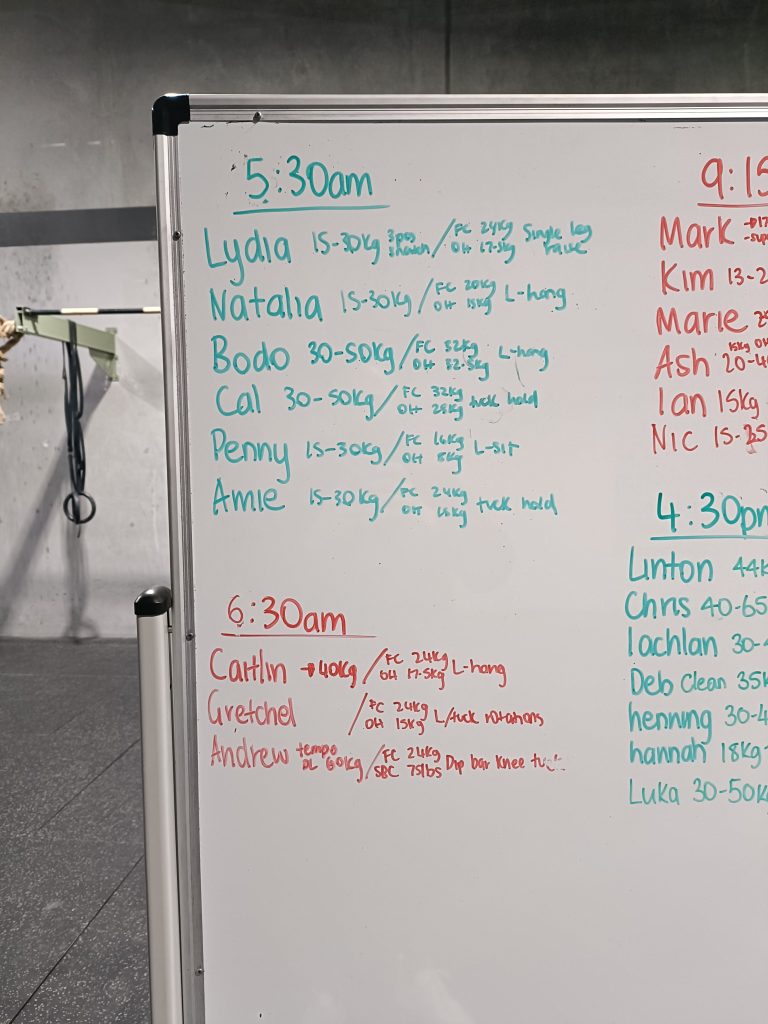 5:30am
Lydia 15-30kg 3pos snatch / FC 24kg OH 17.5kg Single leg raise
Natalia 15-30kg / FC 20kg OH 15kg L-hang
Bodo 30-50kg / FC 32kg OH 32.5kg L-hang
Cal 30-50kg / FC 32kg OH 28kg tuck hold
Penny 15-30kg / FC 16kg OH 8kg L-sit
Amie 15-30kg / FC 24kg OH 16kg tuck hold
6:30am
Caitlin →40kg / FC 24kg OH 17.5kg L-hang
Gretchel / FC 24kg OH 15kg L/tuck rotations
Andrew tempo DL 60kg / FC 24kg SBC 75lbs Dip bar Knee
9:15
Mark
Kim 13-2
Marie
Ash 15kg OH 20-4
Ian 15kg
Nic 15-
4:30pm
Linton 44k
Chris 40-65
lachlan 30-
Deb Clean 35k
henning 30-4
hannah 18kg
Luka 30-50k